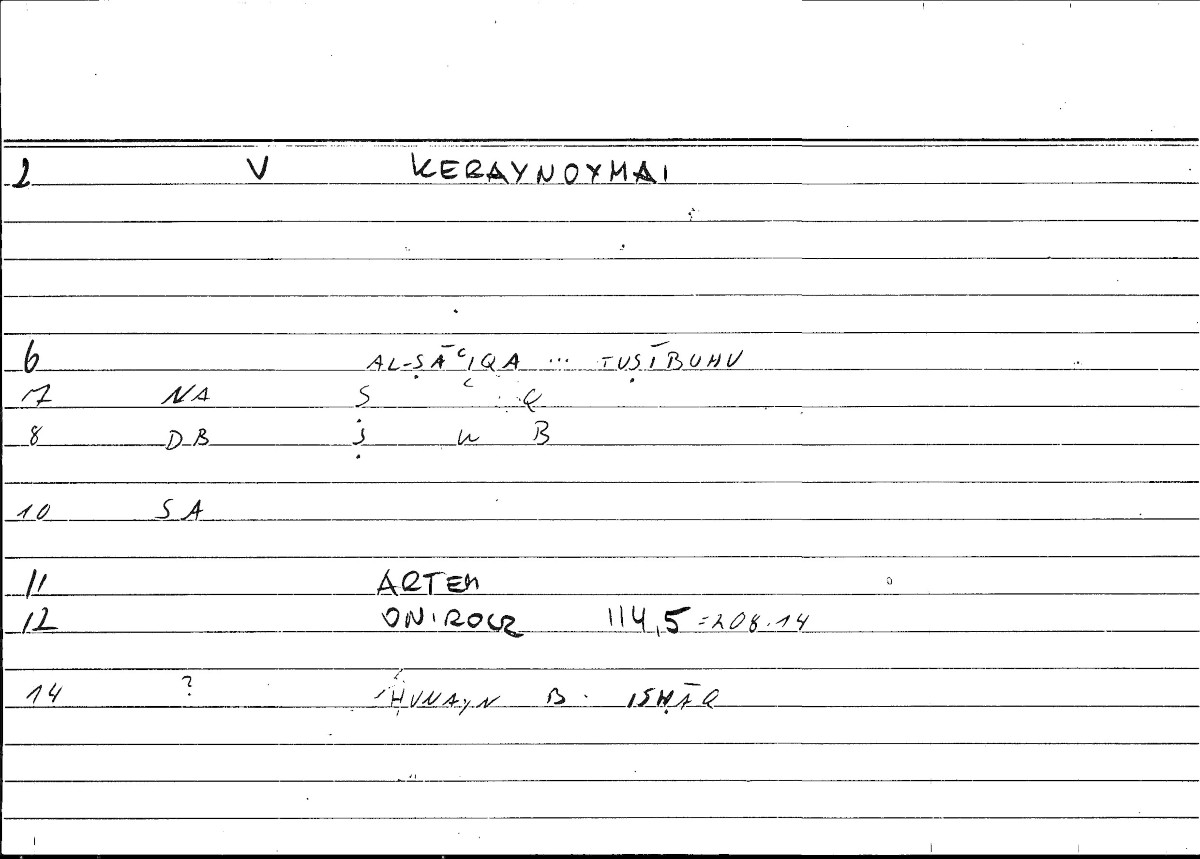 2 V KERAYNOYMAI
6 AL-ṢĀʿIQA ... TUṢĪBUHU
7 NA Ṣ ʿ Q
8 DB Ṣ W B
10 SA
11 ARTEM
12 ONIROCR 114,5 = 208.14
14 ? ḤUNAYN B. ISḤĀQ